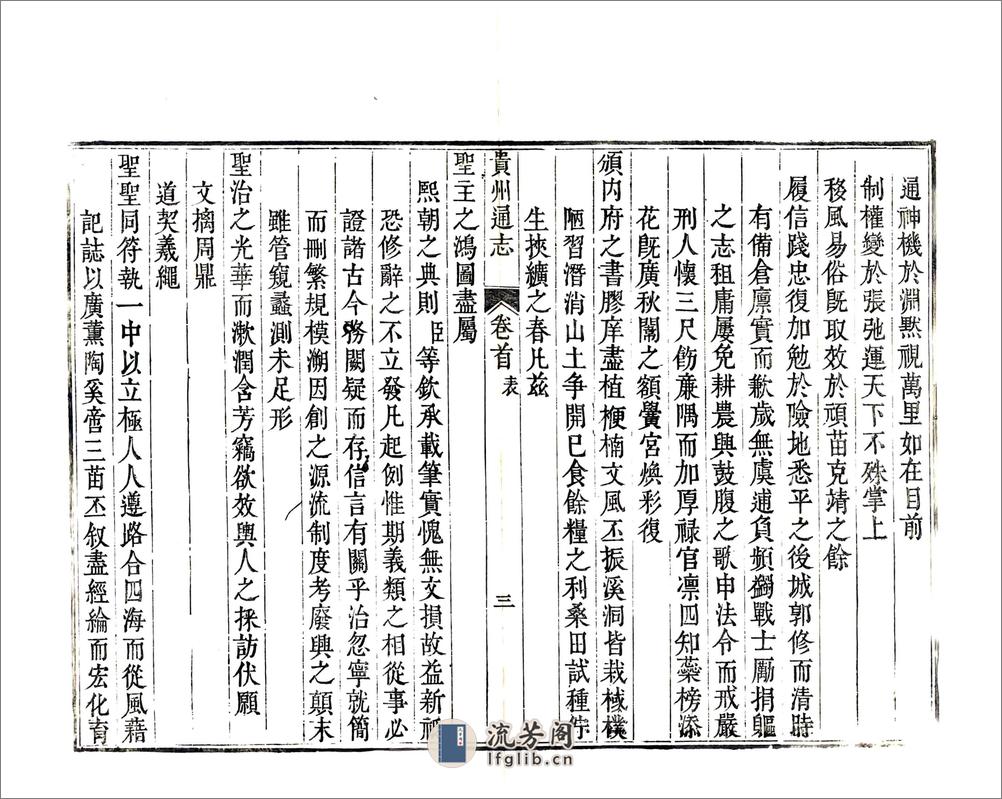 通神機於淵黙視萬里如在目前
制權變於張弛運天下不殊掌上
移風易俗旣取效於頑苗克靖之餘
履信踐忠復加勉於險地悉平之後城郭修而清時
有備倉廩實而歉歲無虞逋負頻蠲戰士勵捐軀
之志租庸屢免耕農興鼓腹之歌申法令而戒嚴
刑人懷三尺飭亷隅而加厚祿官凛四知蘂榜添
花旣廣秋闈之額黌宮煥彩復
頒内府之書膠庠盡植楩楠文風丕振溪洞皆栽棫樸
陋習潛消山土争開已食餘糧之利桑田試種
生挾纊之春凡兹
貴州通志
卷首
表
三
聖主之鴻圖盡屬
熙朝之典則臣等欽承載筆實愧無文損故益新
恐修辭之不立發凡起例惟期義類之相從事必
證諸古今務闕疑而存信言有關乎治忽寧就簡
而刪繁規模溯因創之源流制度考廢興之顛末
雖管窺蠡測未足形
聖治之光華而漱潤含芳竊欲效輿人之採訪伏願
文摛周鼎
道契羲繩
聖聖同符執一中以立極人人遵路合四海而從風藉
記誌以廣薰陶奚啻三苗丕叙盡經綸而宏化育
流芳阁
lfglib.cn